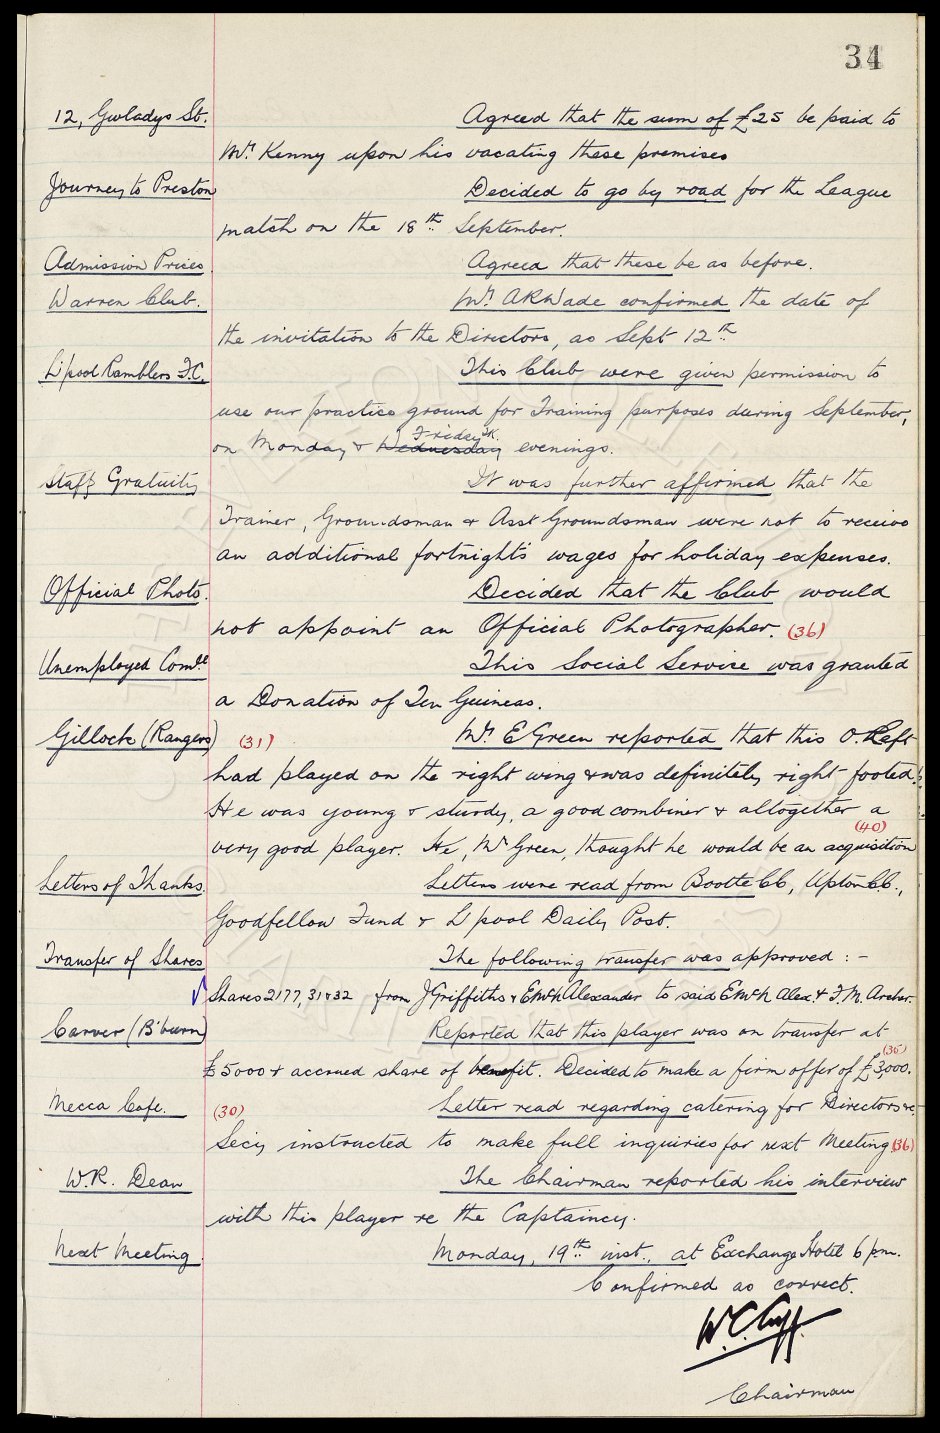 34
12, Gwladys St. Agreed that the sum of £25 be paid to
Mr. Kenny upon his vacating these premises
Journey to Preston Decided to go by road for the League
match on the 18th September.
Admission Prices. Agreed that these be as before.
Warren Club. Mr. A R Wade confirmed the date of
the invitation to the Directors, as Sept 12th.
L'pool Ramblers F.C. This Club were given permission to
use our practice ground for Training purposes during September,
Friday
on Monday & Wednesday evenings.
Staff Gratuity It was further affirmed that the
Trainer, Groundsman & Asst Groundsman were not to receive
an additional fortnight's wages for holiday expenses.
Official Photo. Decided that the Club would
not appoint an Official Photographer. (36)
Unemployed Comtte This Social Service was granted
a Donation of Ten Guineas.
Gillock (Rangers) (31) Mr. E Green reported that this O. Left
had played on the right wing & was definitely right-footed.
He was young & sturdy, a good combiner & altogether a
(40)
very good player. He, Mr Green, thought he would be an acquisition
Letters of Thanks. Letters were read from Bootle CC, Upton C.C.,
Goodfellow Fund & L'pool Daily Post.
Transfer of Shares The following transfer was approved :-
Shares 2177, 31 & 32 from J Griffiths & E McK Alexander to said E McK Alex. & F. M. Archer.
Carver (B'burn) Reported that this player was on transfer at
(35)
£5000 & accrued share of benefit. Decided to make a firm offer of £3,000.
Mecca Cafe. (30) Letter read regarding catering for Directors &c.
Secy instructed to make full inquiries for next Meeting (36)
W.R. Dean The Chairman reported his interview
with this player re the Captaincy.
Next Meeting. Monday, 19th inst., at Exchange Hotel 6 p.m.
Confirmed as correct.
W.C. Cuff.
Chairman